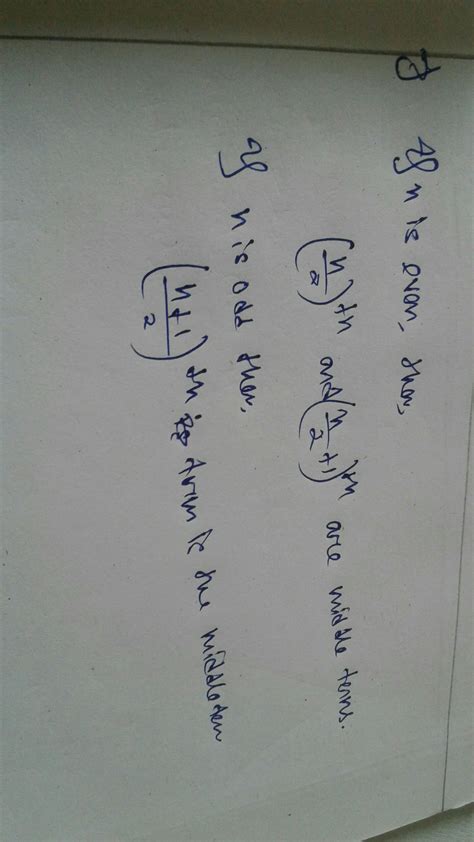 If n is even, then,
(n/2)th and (n/2 +1)th are middle terms.
If n is odd then,
(n+1/2)th term is the middle term